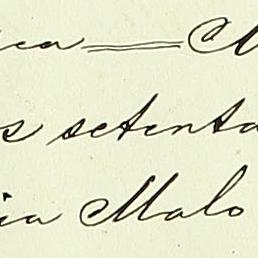 ica == M
s setenta
ia Malo